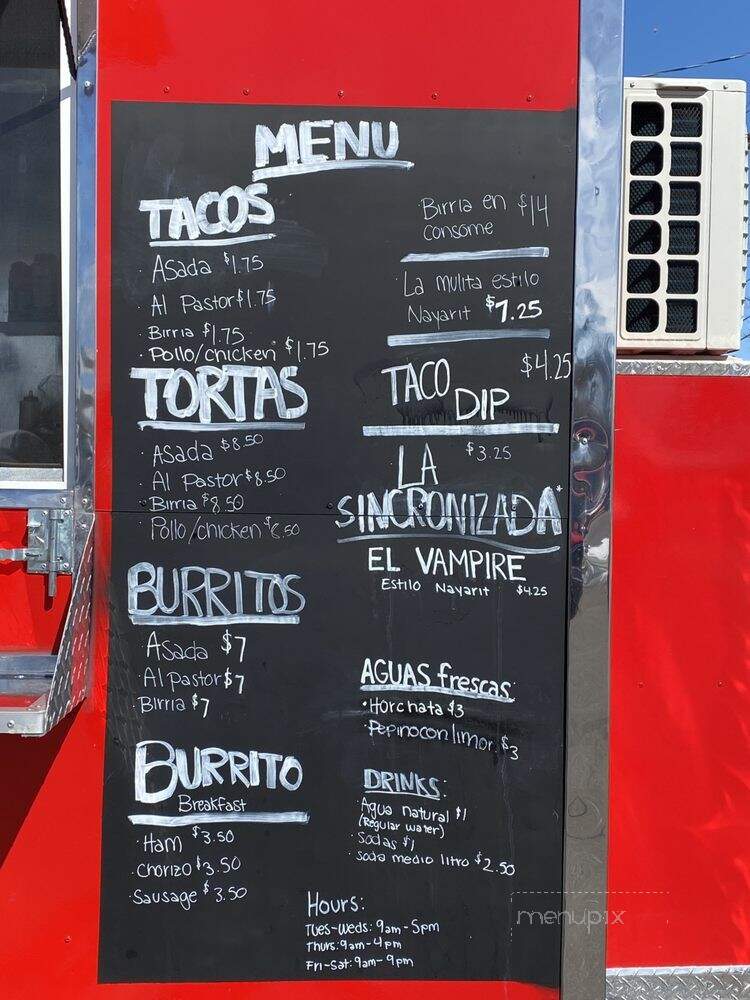 MENU
TACOS
· Asada $1.75
· Al Pastor $1.75
· Birria $1.75
· Pollo/chicken $1.75
TORTAS
· Asada $8.50
· Al Pastor $8.50
· Birria $8.50
· Pollo/chicken $8.50
BURRITOS
· Asada $7
· Al pastor $7
· Birria $7
BURRITO
Breakfast
· Ham $3.50
· Chorizo $3.50
· Sausage $3.50
· Birria en $14
consome
· La mulita estilo
Nayarit $7.25
$4.25
TACO DIP
$3.25
LA
SINCRONIZADA*
EL VAMPIRE
Estilo Nayarit $4.25
AGUAS frescas:
· Horchata $3
· Pepinocon limon $3
DRINKS:
· Agua natural $1
(Regular water)
· Sodas $1
· soda medio litro $2.50
Hours:
Tues-Weds: 9am-5pm
Thurs: 9am-4pm
Fri-Sat: 9am-9pm
menupix